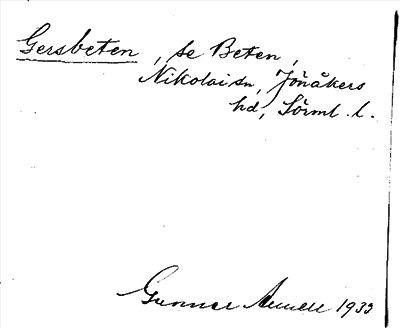 Gersbeten, se Beten,
Nikolai sn, Jönåkers
hd, Sörml. l.
Gunnar 1933